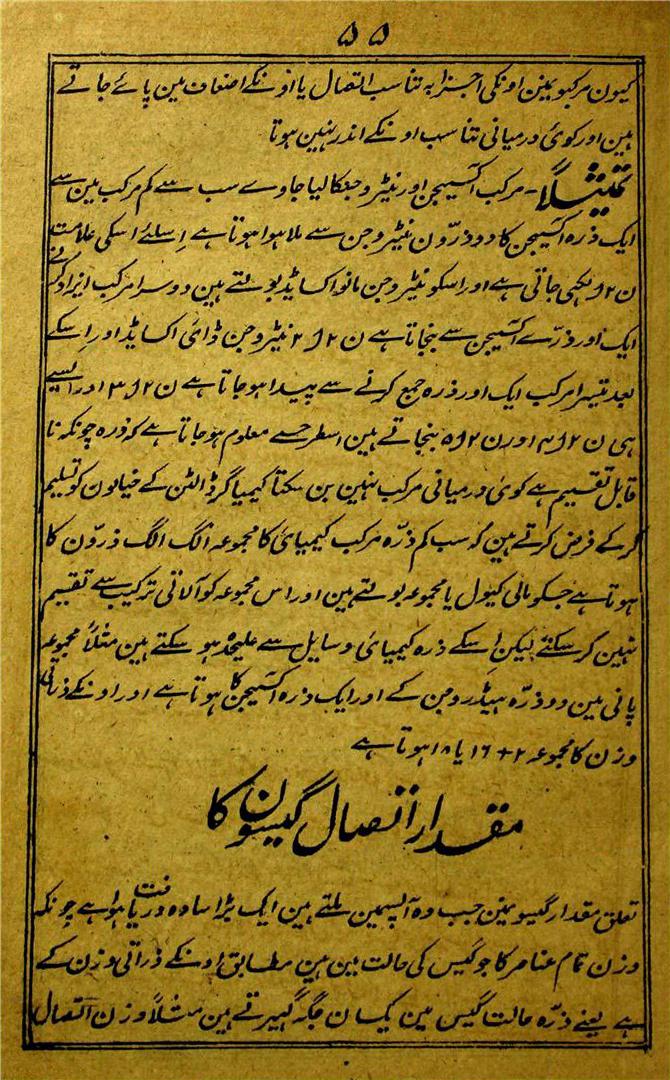 ۵۵
کیون مرکبونمین اونکی اجزا بہ تناسب اتصال یا اونکے اضعاف مین پائے جاتے
ہین اور کوئی درمیانی تناسب اونکے اندر نہین ہوتا
تمثیلاً - مرکب آکسیجن اور نیٹروجنکا لیا جاوے سب سے کم مرکب مین سے
ایک ذرہ آکسیجن کا دو ذرّون نیٹروجن سے ملا ہوا ہوتا ہے اسلئے اسکی علامت
ن۲ا لکھی جاتی ہے اور اسکو نیٹروجن مانواکسایڈ بولتے ہین دوسرا مرکب ایزاد کرنے
ایک اور ذرّے آکسیجن سے بنجاتا ہے ن۲ا۲ نیٹروجن ڈائی اکسایڈ اور اسکے
بعد تیسرا مرکب ایک اور ذرہ جمع کرنے سے پیدا ہو جاتا ہے ن۲ا۳ اور ایسے
ہی ن۲ا۴ اور ن۲ا۵ بنجاتے ہین اسطرحسے معلوم ہو جاتا ہے کہ ذرہ چونکہ نا
قابل تقسیم ہے کوئی درمیانی مرکب نہین بن سکتا کیمیاگر ڈالٹن کے خیالون کو تسلیم
کر کے فرض کرتے ہین کہ سب کم ذرّہ مرکب کیمیائی کا مجموعہ الگ الگ ذرّون کا
ہوتا ہے جسکو مالی کیول یا مجموعہ بولتے ہین اور اس مجموعہ کو آلاتی ترکیب سے تقسیم
نہین کر سکتے لیکن اسکے ذرہ کیمیائی وسایل سے علیحدہ ہو سکتے ہین مثلاً مجموعہ
پانی مین دو ذرّہ ہیڈروجن کے اور ایک ذرہ آکسیجن کا ہوتا ہے اور اونکے ذراتی
وزن کا مجموعہ ۲+۱۶ یا ۱۸ ہوتا ہے
مقدار اتصال گیسون کا
تعلق مقدار گیسونمین جب وہ آپسمین ملتے ہین ایک بڑا سادہ دریافت ہوا ہے چونکہ
وزن تمام عناصر کا جو گیس کی حالت مین ہین مطابق اونکے ذراتی وزن کے
ہے یعنے ذرّہ حالت گیس مین یکسان جگہ گھیرتے ہین مثلاً وزن اتصال